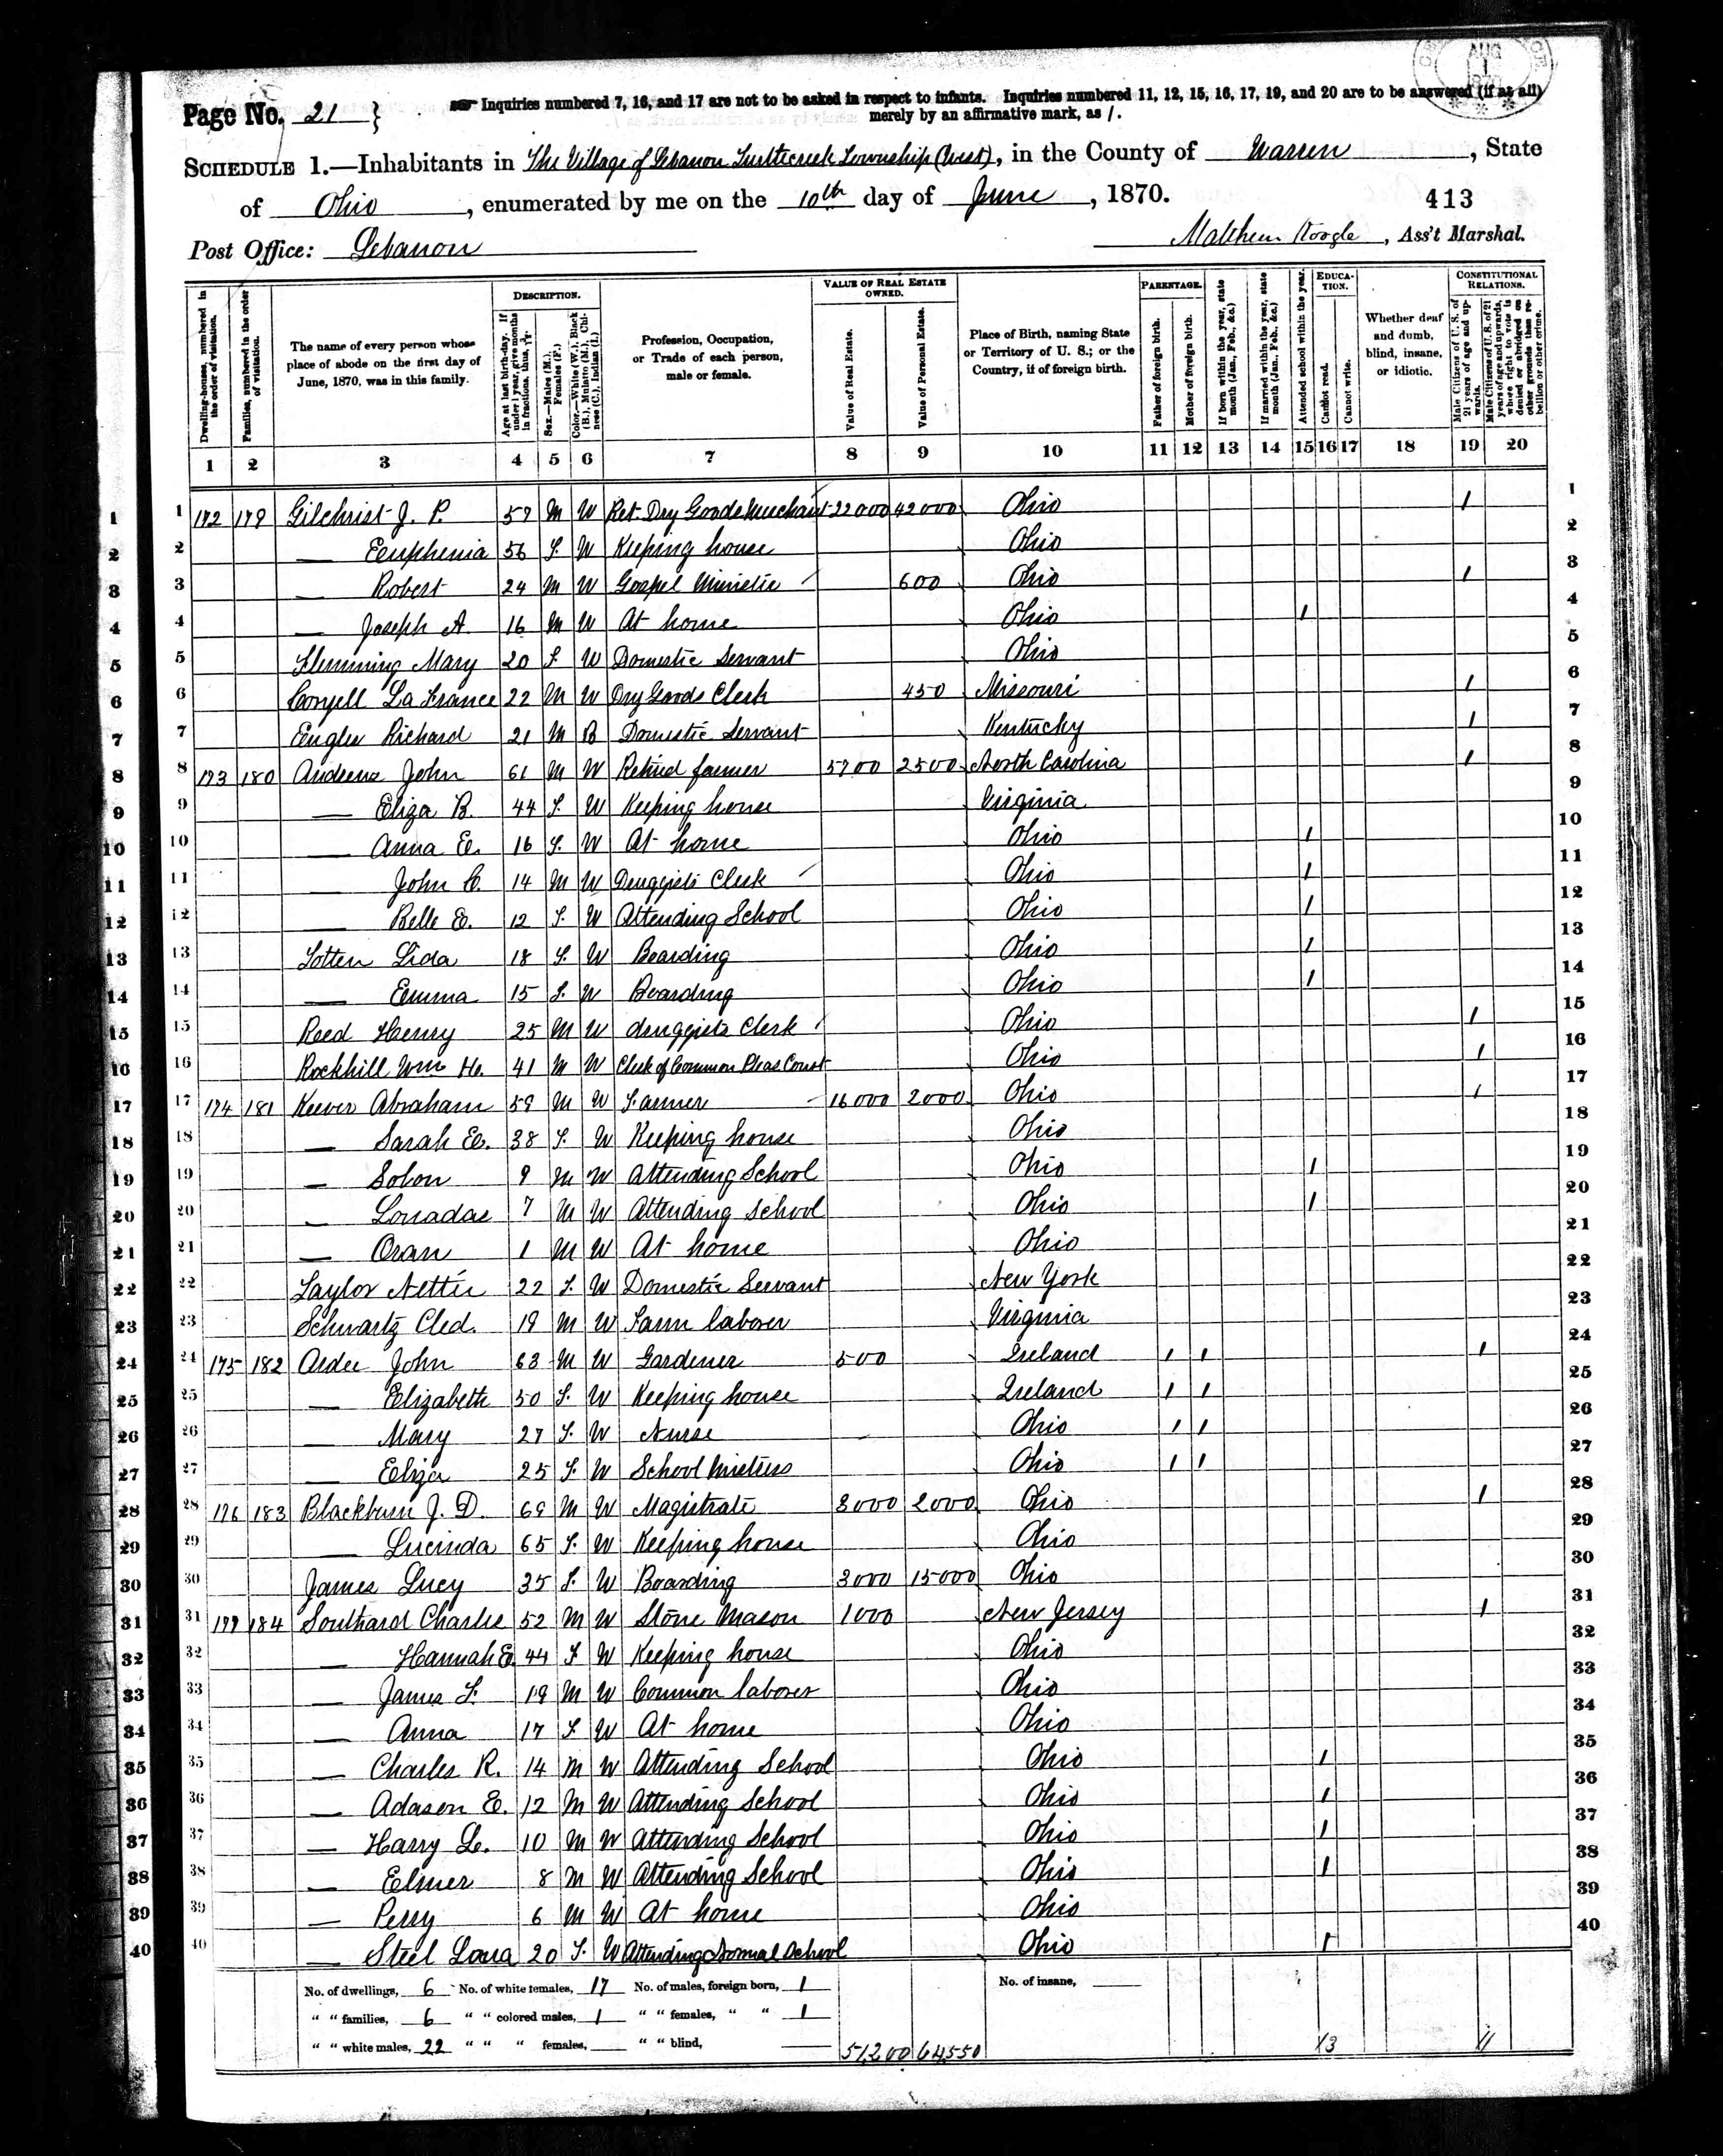 Page No. 21 }
Inquiries numbered 7, 16, and 17 are not to be asked in respect to infants. Inquiries numbered 11, 12, 15, 16, 17, 19, and 20 are to be answered (if at all)
merely by an affirmative mark, as /.
AUG 1 1870
SCHEDULE 1.—Inhabitants in The Village of Lebanon Turtlecreek Township (West), in the County of Warren, State
of Ohio, enumerated by me on the 10th day of June, 1870.
413
Post Office: Lebanon
Ass't Marshal.
Dwelling-houses, numbered in the order of visitation.
Families, numbered in the order of visitation.
The name of every person whose place of abode on the first day of June, 1870, was in this family.
DESCRIPTION.
Age at last birth-day. If under 1 year, give months in fractions, thus, 3/12.
Sex.—Males (M.), Females (F.)
Color.—White (W.), Black (B.), Mulatto (M.), Chinese (C.), Indian (I.)
Profession, Occupation, or Trade of each person, male or female.
VALUE OF REAL ESTATE OWNED.
Value of Real Estate.
Value of Personal Estate.
Place of Birth, naming State or Territory of U. S.; or the Country, if of foreign birth.
PARENTAGE.
Father of foreign birth.
Mother of foreign birth.
If born within the year, state month (Jan., Feb., &c.)
If married within the year, state month (Jan., Feb., &c.)
Attended school within the year.
EDUCATION.
Cannot read.
Cannot write.
Whether deaf and dumb, blind, insane, or idiotic.
CONSTITUTIONAL RELATIONS.
Male Citizens of U. S. of 21 years of age and upwards.
Male Citizens of U. S. of 21 years of age and upwards, whose right to vote is denied or abridged on other grounds than rebellion or other crime.
1 2 3 4 5 6 7 8 9 10 11 12 13 14 15 16 17 18 19 20
1 172 179 Gilchrist J. P. 57 M W Ret. Dry Goods Merchant 22000 42000 Ohio / 1
2 — Euphenia 56 F. W Keeping house Ohio 2
3 — Robert 24 M W Gospel Minister 600 Ohio / 3
4 — Joseph A. 16 M W At home Ohio / 4
5 Flemming Mary 20 F. W Domestic Servant Ohio 5
6 Coryell La France 22 M W Dry Goods Clerk 450 Missouri / 6
7 Richard 21 M B Domestic Servant Kentucky / 7
8 173 180 Andrews John 61 M W Retired farmer 5700 2500 North Carolina / 8
9 — Eliza B. 44 F. W Keeping house Virginia 9
10 — Anna E. 16 F. W At home Ohio / 10
11 — John C. 14 M W Druggists Clerk Ohio / 11
12 — Belle E. 12 F. W Attending School Ohio / 12
13 Totten Lida 18 F. W Boarding Ohio / 13
14 — Emma 15 F. W Boarding Ohio / 14
15 Reed Henry 25 M W druggists Clerk Ohio / 15
16 Rockhill Wm H. 41 M W Clerk of Common Pleas Court Ohio / 16
17 174 181 Keever Abraham 59 M W Farmer 16000 2000 Ohio / 17
18 — Sarah E. 38 F. W Keeping house Ohio 18
19 — Solon 9 M W Attending School Ohio / 19
20 — 7 M W Attending School Ohio / 20
21 — Oran 1 M W At home Ohio 21
22 Taylor Nettie 22 F. W Domestic Servant New York 22
23 Schwartz Cled. 19 M W Farm laborer Virginia 23
24 175 182 Ardee John 63 M W Gardener 500 Ireland / / / 24
25 — Elizabeth 50 F. W Keeping house Ireland / / 25
26 — Mary 27 F. W Nurse Ohio / / 26
27 — Eliza 25 F. W School Mistress Ohio / / 27
28 176 183 Blackburn J. D. 69 M W Magistrate 3000 2000 Ohio / 28
29 — Lucinda 65 F. W Keeping house Ohio 29
30 James Lucy 35 F. W Boarding 3000 15000 Ohio 30
31 177 184 Southard Charles 52 M W Stone Mason 1000 New Jersey / 31
32 — Hannah E. 44 F W Keeping house Ohio 32
33 — James F. 19 M W Common laborer Ohio 33
34 — Anna 17 F W At home Ohio 34
35 — Charles R. 14 M W Attending School Ohio / 35
36 — Adason E. 12 M W Attending School Ohio / 36
37 — Harry L. 10 M W Attending School Ohio / 37
38 — Elmer 8 M W Attending School Ohio / 38
39 — Perry 6 M W At home Ohio 39
40 — Steel Loua 20 F. W Attending Normal School Ohio / 40
No. of dwellings, 6 No. of white females, 17 No. of males, foreign born, 1 No. of insane,
" " families, 6 " " colored males, 1 " " females, " " 1
" " white males, 22 " " " females, " " blind, 51200 64550 13 11